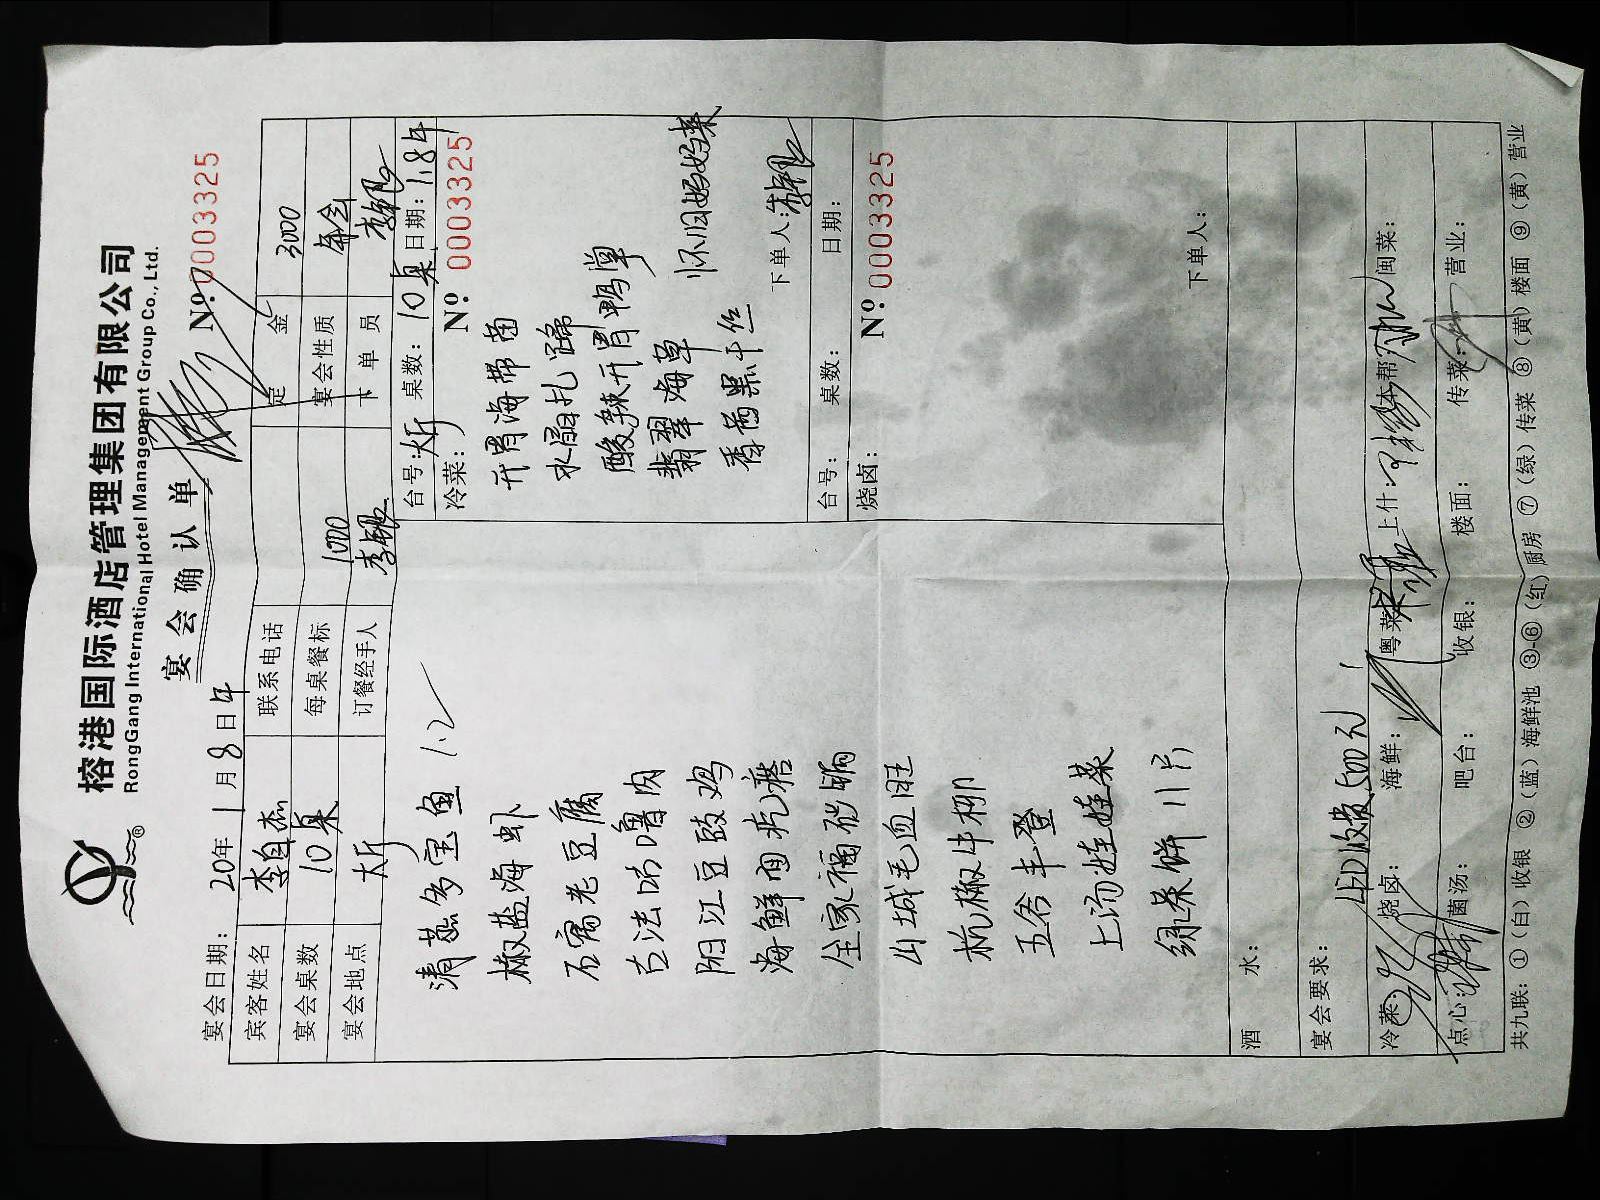 榕港国际酒店管理集团有限公司
RongGang International Hotel Management Group Co., Ltd.
®
宴会确认单
宴会日期： 20 年 1 月 8 日 午 Nº 0003325
宾客姓名 李自杰 联系电话 定金 3000
宴会桌数 10桌 每桌餐标 1000 宴会性质
宴会地点 大厅 订餐经手人 下单员
清蒸多宝鱼 1.2
椒盐海虾
石窝老豆腐
古法 肉
阳江豆豉鸡
海鲜
全家福砂锅
山城毛血旺
杭椒牛柳
五谷丰登
上汤娃娃菜
绿茶饼 11片
台号：大厅 桌数：10桌 日期：1.8午
冷菜： Nº 0003325
开胃海带苗
水晶扎蹄
酸辣开胃鸭掌
翡翠海草
香茜黑干丝
怀旧妈妈菜
下单人：
台号： 桌数： 日期：
烧卤： Nº 0003325
下单人：
酒水：
宴会要求：
冷菜： 烧卤： 海鲜： 粤菜： 上什： 本帮： 闽菜：
点心： 菌汤： 吧台： 收银： 楼面： 传菜： 营业：
共九联：①（白）收银 ②（蓝）海鲜池 ③-⑥（红）厨房 ⑦（绿）传菜 ⑧（黄）楼面 ⑨（黄）营业